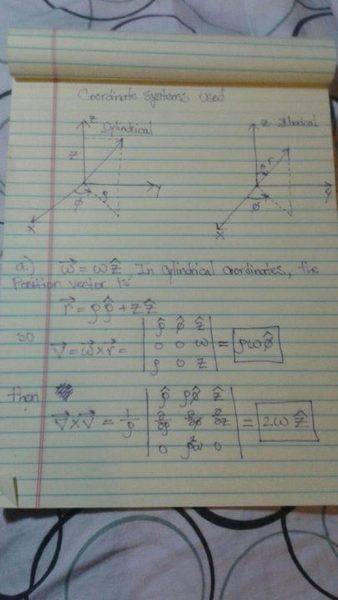 Coordinate systems used
z Cylindrical
z
y
φ ρ
x
z Spherical
θ r
y
φ
x
a) ω⃗ = ωẑ, In cylindrical coordinates, the
Position vector is
r⃗ = ρρ̂ + zẑ
so
v⃗ = ω⃗ × r⃗ = | ρ̂ φ̂ ẑ | = ρωφ̂
| 0 0 ω |
| ρ 0 z |
then
∇⃗ × v⃗ = 1/ρ | ρ̂ ρφ̂ ẑ | = 2ωẑ
| ∂/∂ρ ∂/∂φ ∂/∂z |
| 0 ρ²ω 0 |